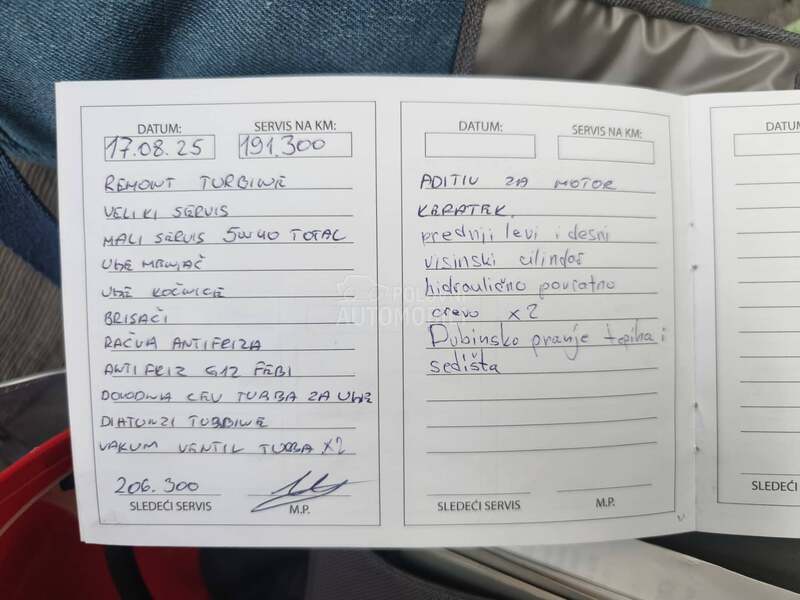 DATUM:
SERVIS NA KM:
17.08.25
191.300
REMONT TURBINE
VELIKI SERVIS
MALI SERVIS 5W40 TOTAL
ULJE MENJAČ
ULJE KOČNICE
BRISAČI
RAČVA ANTIFRIZA
ANTIFRIZ G12 FEBI
DOVODNA CEV TURBA ZA ULJE
DIHTUNZI TURBINE
VAKUM VENTIL TURBA x2
206.300
SLEDEĆI SERVIS
M.P.
DATUM:
SERVIS NA KM:
ADITIV ZA MOTOR
KERATEK.
prednji levi i desni
visinski cilindar
hidraulično povratno
crevo x2
Dubinsko pranje tepiha i
sedišta
SLEDEĆI SERVIS
M.P.
POLOVNI
AUTOMOBILI
DATUM:
SLEDEĆI SERVIS